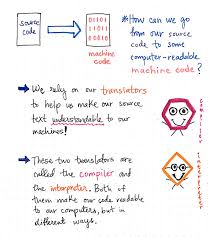 source code
01101
11011
01000
machine code
* How can we go from our source code to some computer-readable machine code?
→ We rely on our translators
to help us make our source
text understandable to our
machines!
compiler
→ These two translators are
called the compiler and
the interpreter. Both of
them make our code readable
to our computers, but in
different ways.
interpreter